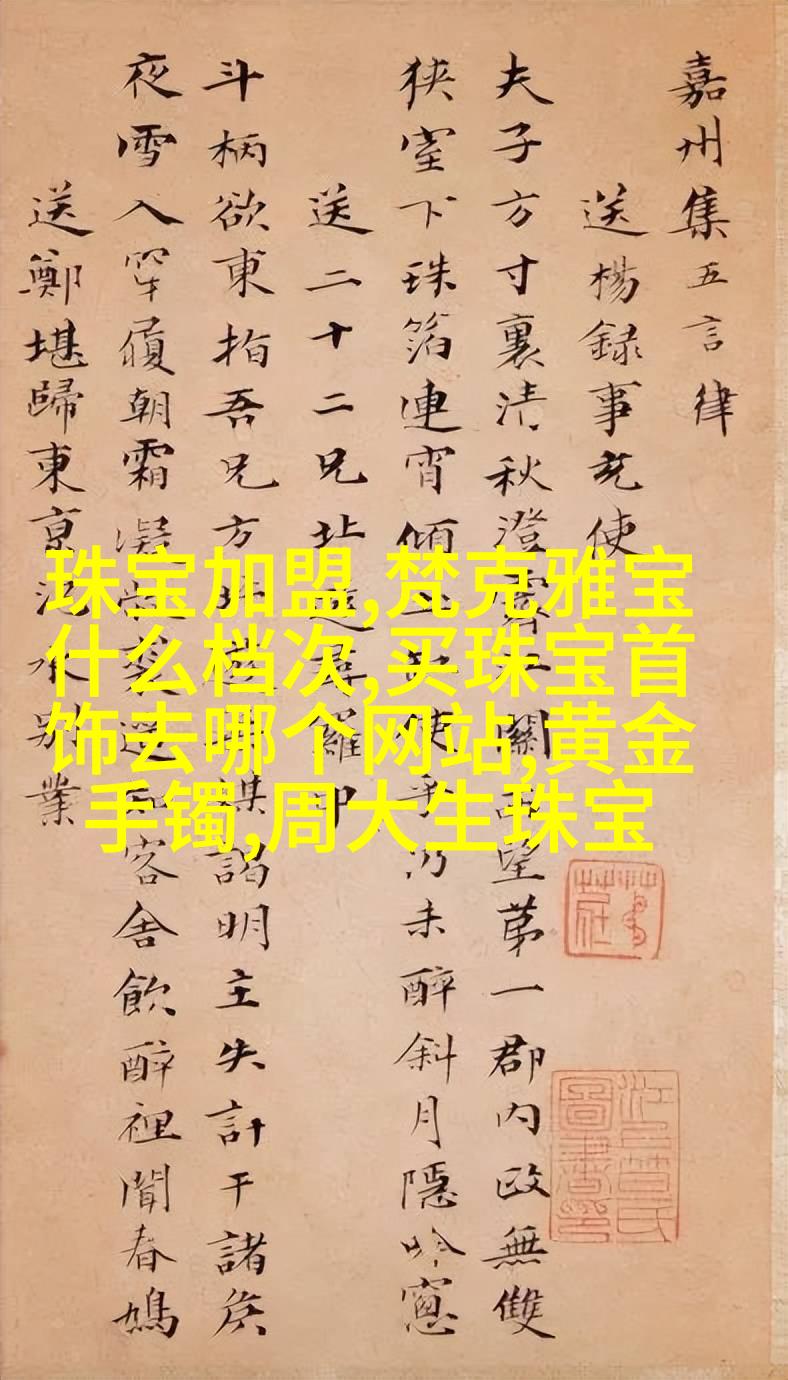 嘉州集五言律
送楊録事充使
夫子方寸裏清秋澄霽關望苐一郡内政無雙
狹室下珠箔連宵傾使乎仍未醉斜月隱吟窻
送二十二兄北遊尋羅中
斗柄欲東指吾兄方謀謁明主失計干諸矦
夜雪入穿履朝霜凝裘客舍飲醉裡聞春鳩
送鄭堪歸東京汜水別業
江上笪氏圖書印
珠宝加盟,梵克雅宝
什么档次,买珠宝首
饰去哪个网站,黄金
手镯,周大生珠宝